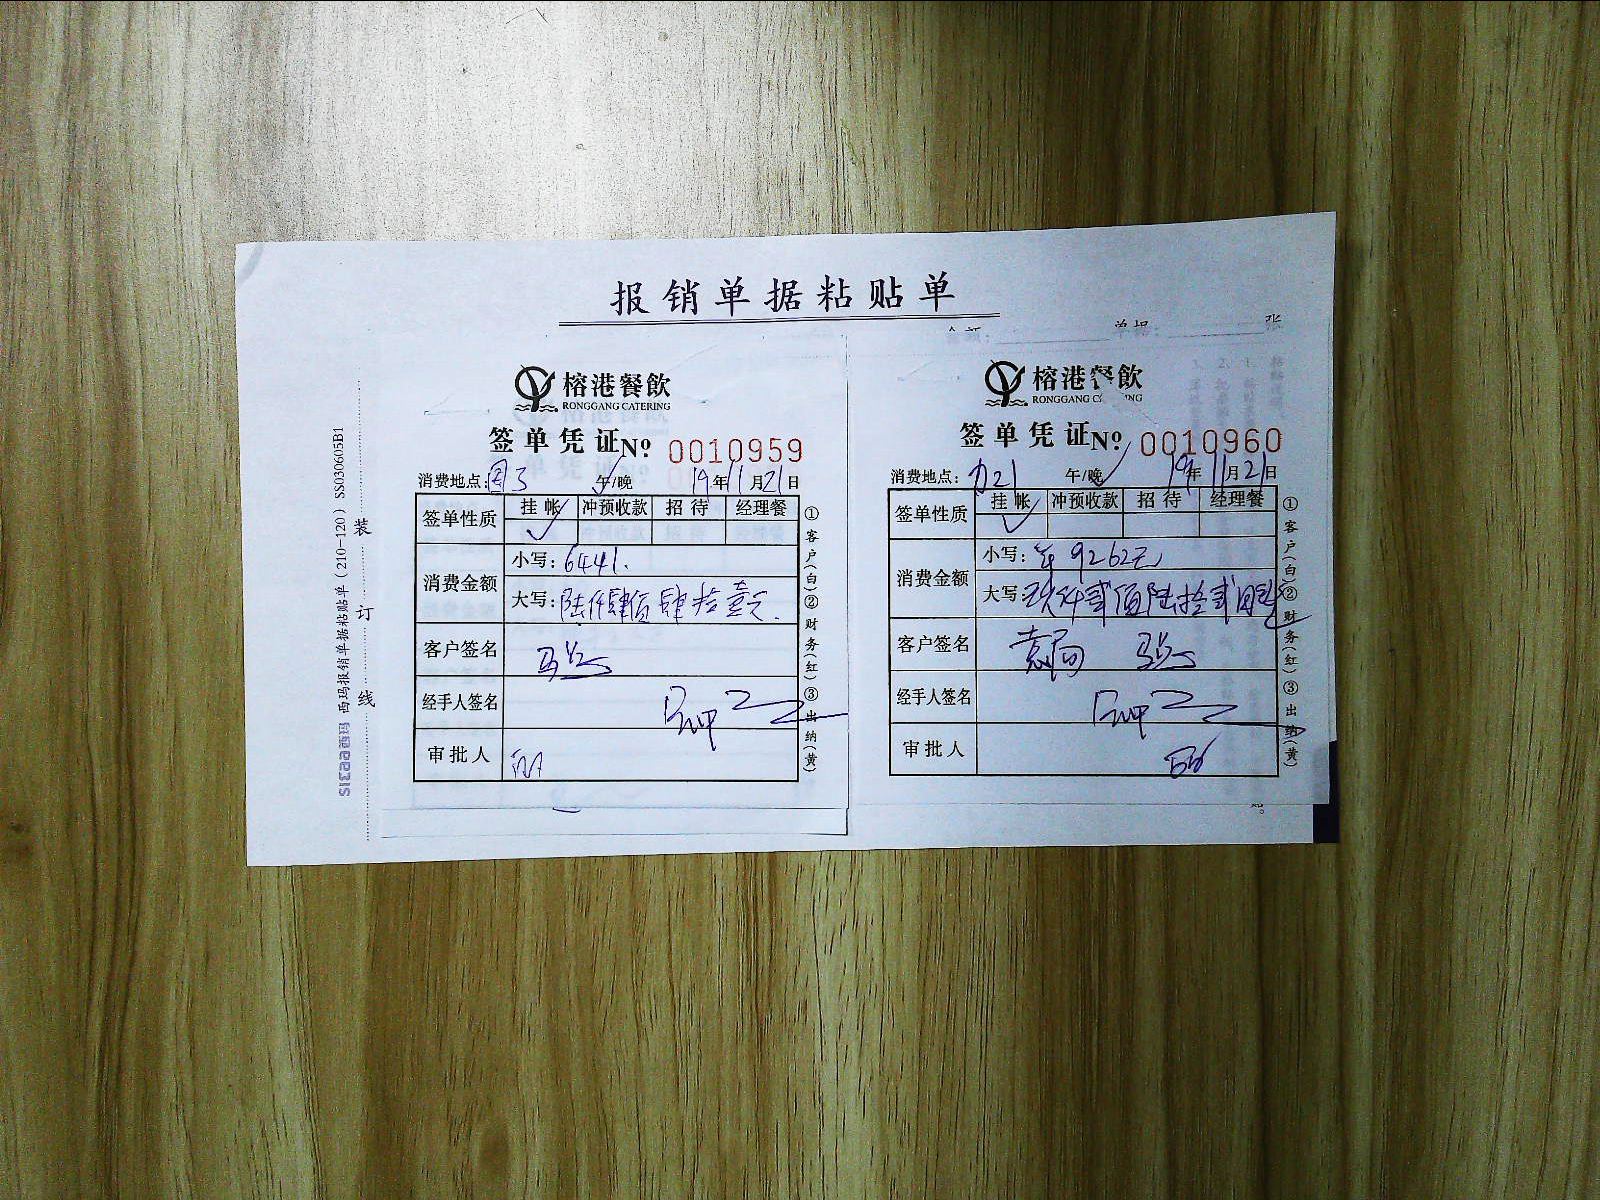 报销单据粘贴单
金额: 单据: 张
榕港餐飲
RONGGANG CATERING
签单凭证 № 0010959
消费地点: 午/晚 19年11月21日
签单性质 挂帐 冲预收款 招待 经理餐
消费金额 小写: 6441.
大写: 陆仟肆佰肆拾壹元.
客户签名
经手人签名
审批人
①客户(白)②财务(红)③出纳(黄)
榕港餐飲
RONGGANG CATERING
签单凭证 № 0010960
消费地点: 午/晚 19年11月21日
签单性质 挂帐 冲预收款 招待 经理餐
消费金额 小写: 9262元
大写: 玖仟贰佰陆拾贰圆
客户签名
经手人签名
审批人
①客户(白)②财务(红)③出纳(黄)
装订线
simaa西玛 西玛报销单据粘贴单(210-120) SS030605B1